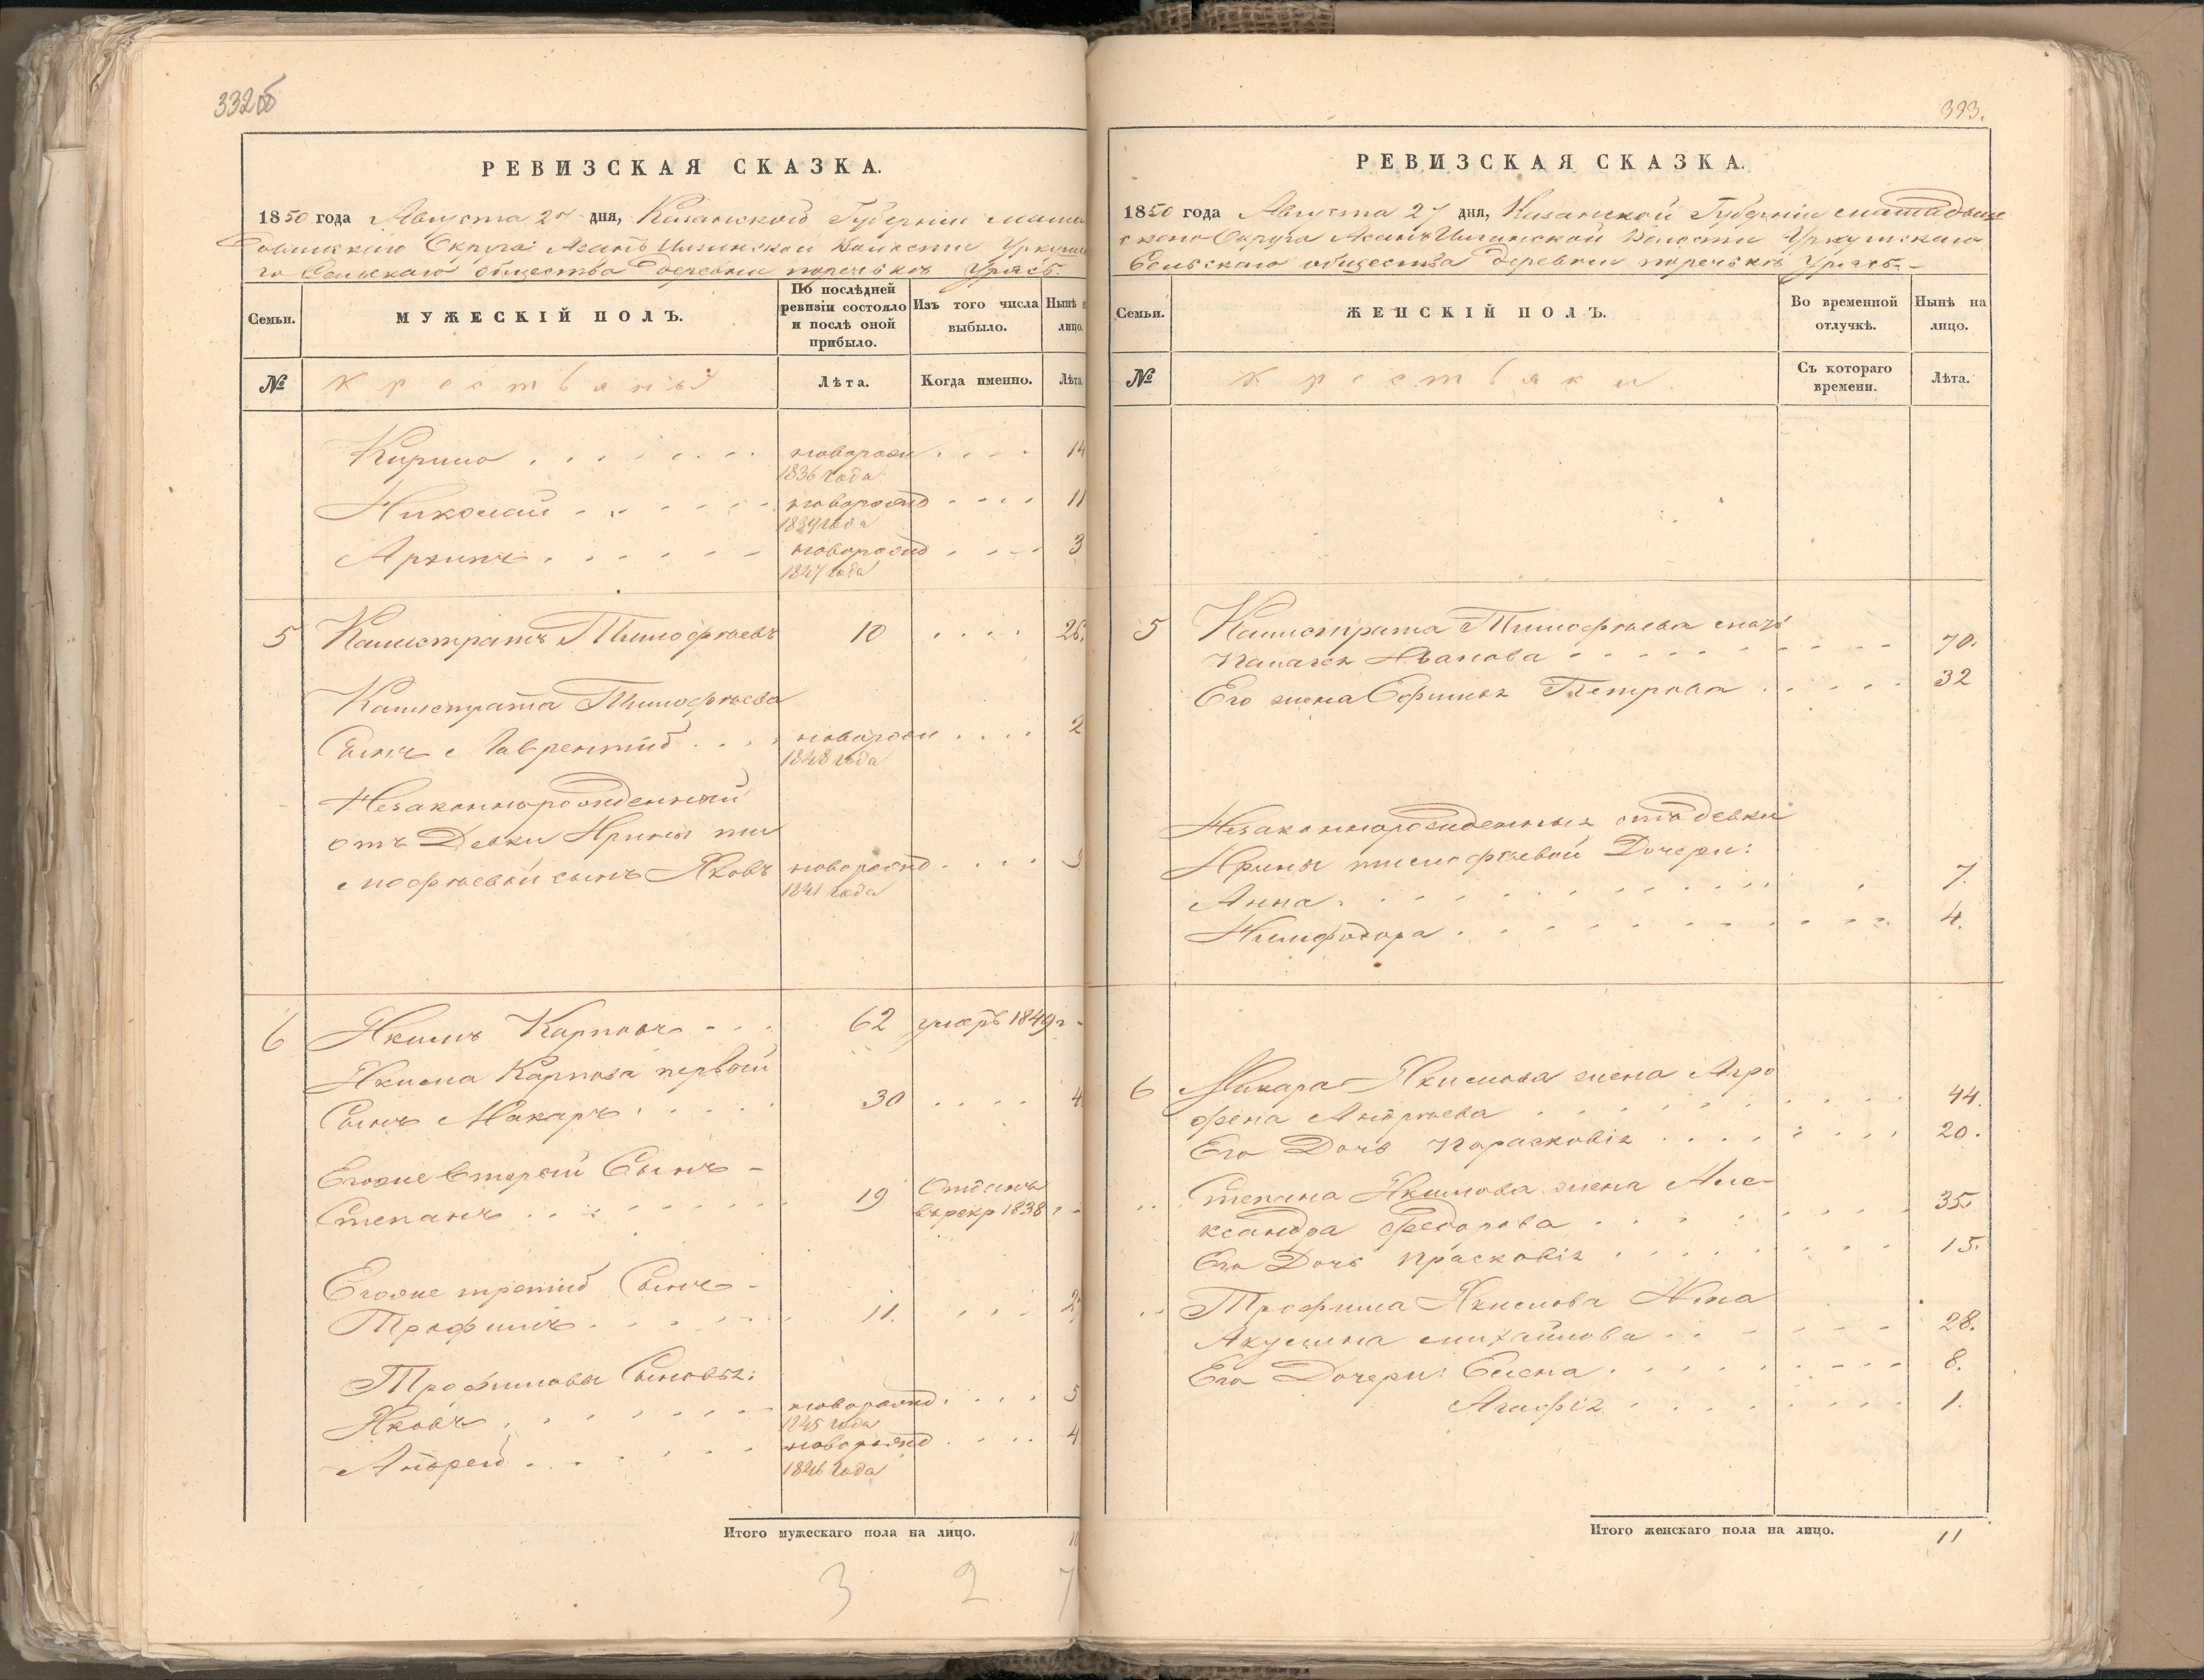 332об
РЕВИЗСКАЯ СКАЗКА.
1850 года Августа 27 дня, Казанской Губерніи Мама
дышскаго Округа Асанъ Волости Уркуш
го Сельскаго общества деревни поречькъ Урясь
Семьи.
МУЖЕСКІЙ ПОЛЪ.
По послѣдней ревизіи состояло и послѣ оной прибыло.
Изъ того числа выбыло.
Нынѣ н лицо.
№
Крестьяны
Лѣта.
Когда именно.
Лѣта
Кирило новорожд 14
1836 года
Николай новорожд 11
1839 года
Архипъ новорожд 3
1847 года
5 Калистратъ Тимофѣевъ 10 26.
Калистрата Тимофѣева
Сынъ Лаврентій новорожд 2
1848 года
Незаконнорожденный
отъ Девки Ирины ти
мофѣевой сынъ Яковъ новорожд 9
1841 года
6 Якимъ Карповъ 62 умеръ 1849 г
Якима Карпова первой
Сынъ Макаръ 30 4
Егоже Вторый Сынъ
Степанъ 19 Отданъ
врекр 1838 г
Егоже третій Сынъ
Трофимъ 11. 27
Трофимовы Сыновья:
Яковъ новорожд 5
1845 года
Андрей новорожд 4
1846 года
Итого мужескаго пола на лицо. 10
3 2 7
333.
РЕВИЗСКАЯ СКАЗКА.
1850 года Августа 27 дня, Казанской Губерніи мамадыш
скаго Округа Асанъ Волости Уркушскаго
Сельскаго общества деревни поречькъ Урясь
Семьи.
ЖЕНСКІЙ ПОЛЪ.
Во временной отлучкѣ.
Нынѣ на лицо.
№
Крестьянки
Съ котораго времени.
Лѣта.
5 Калистрата Тимофѣева мать
Палагея Иванова 70.
Его жена Ефимья Петрова 32
Незаконнорожденныя отъ девки
Ирины тимофѣевой Дочери:
Анна 7.
Нимфодора 4.
6 Макара Якимова жена Агро
фена Андрѣева 44.
Его Дочь Парасковія 20.
Степана Якимова жена Але
ксандра Федорова 35
Его Дочь Прасковія 15.
Трофима Якимова Жена
Акулина михайлова 28.
Его Дочери: Елена 8.
Агафія 1.
Итого женскаго пола на лицо. 11